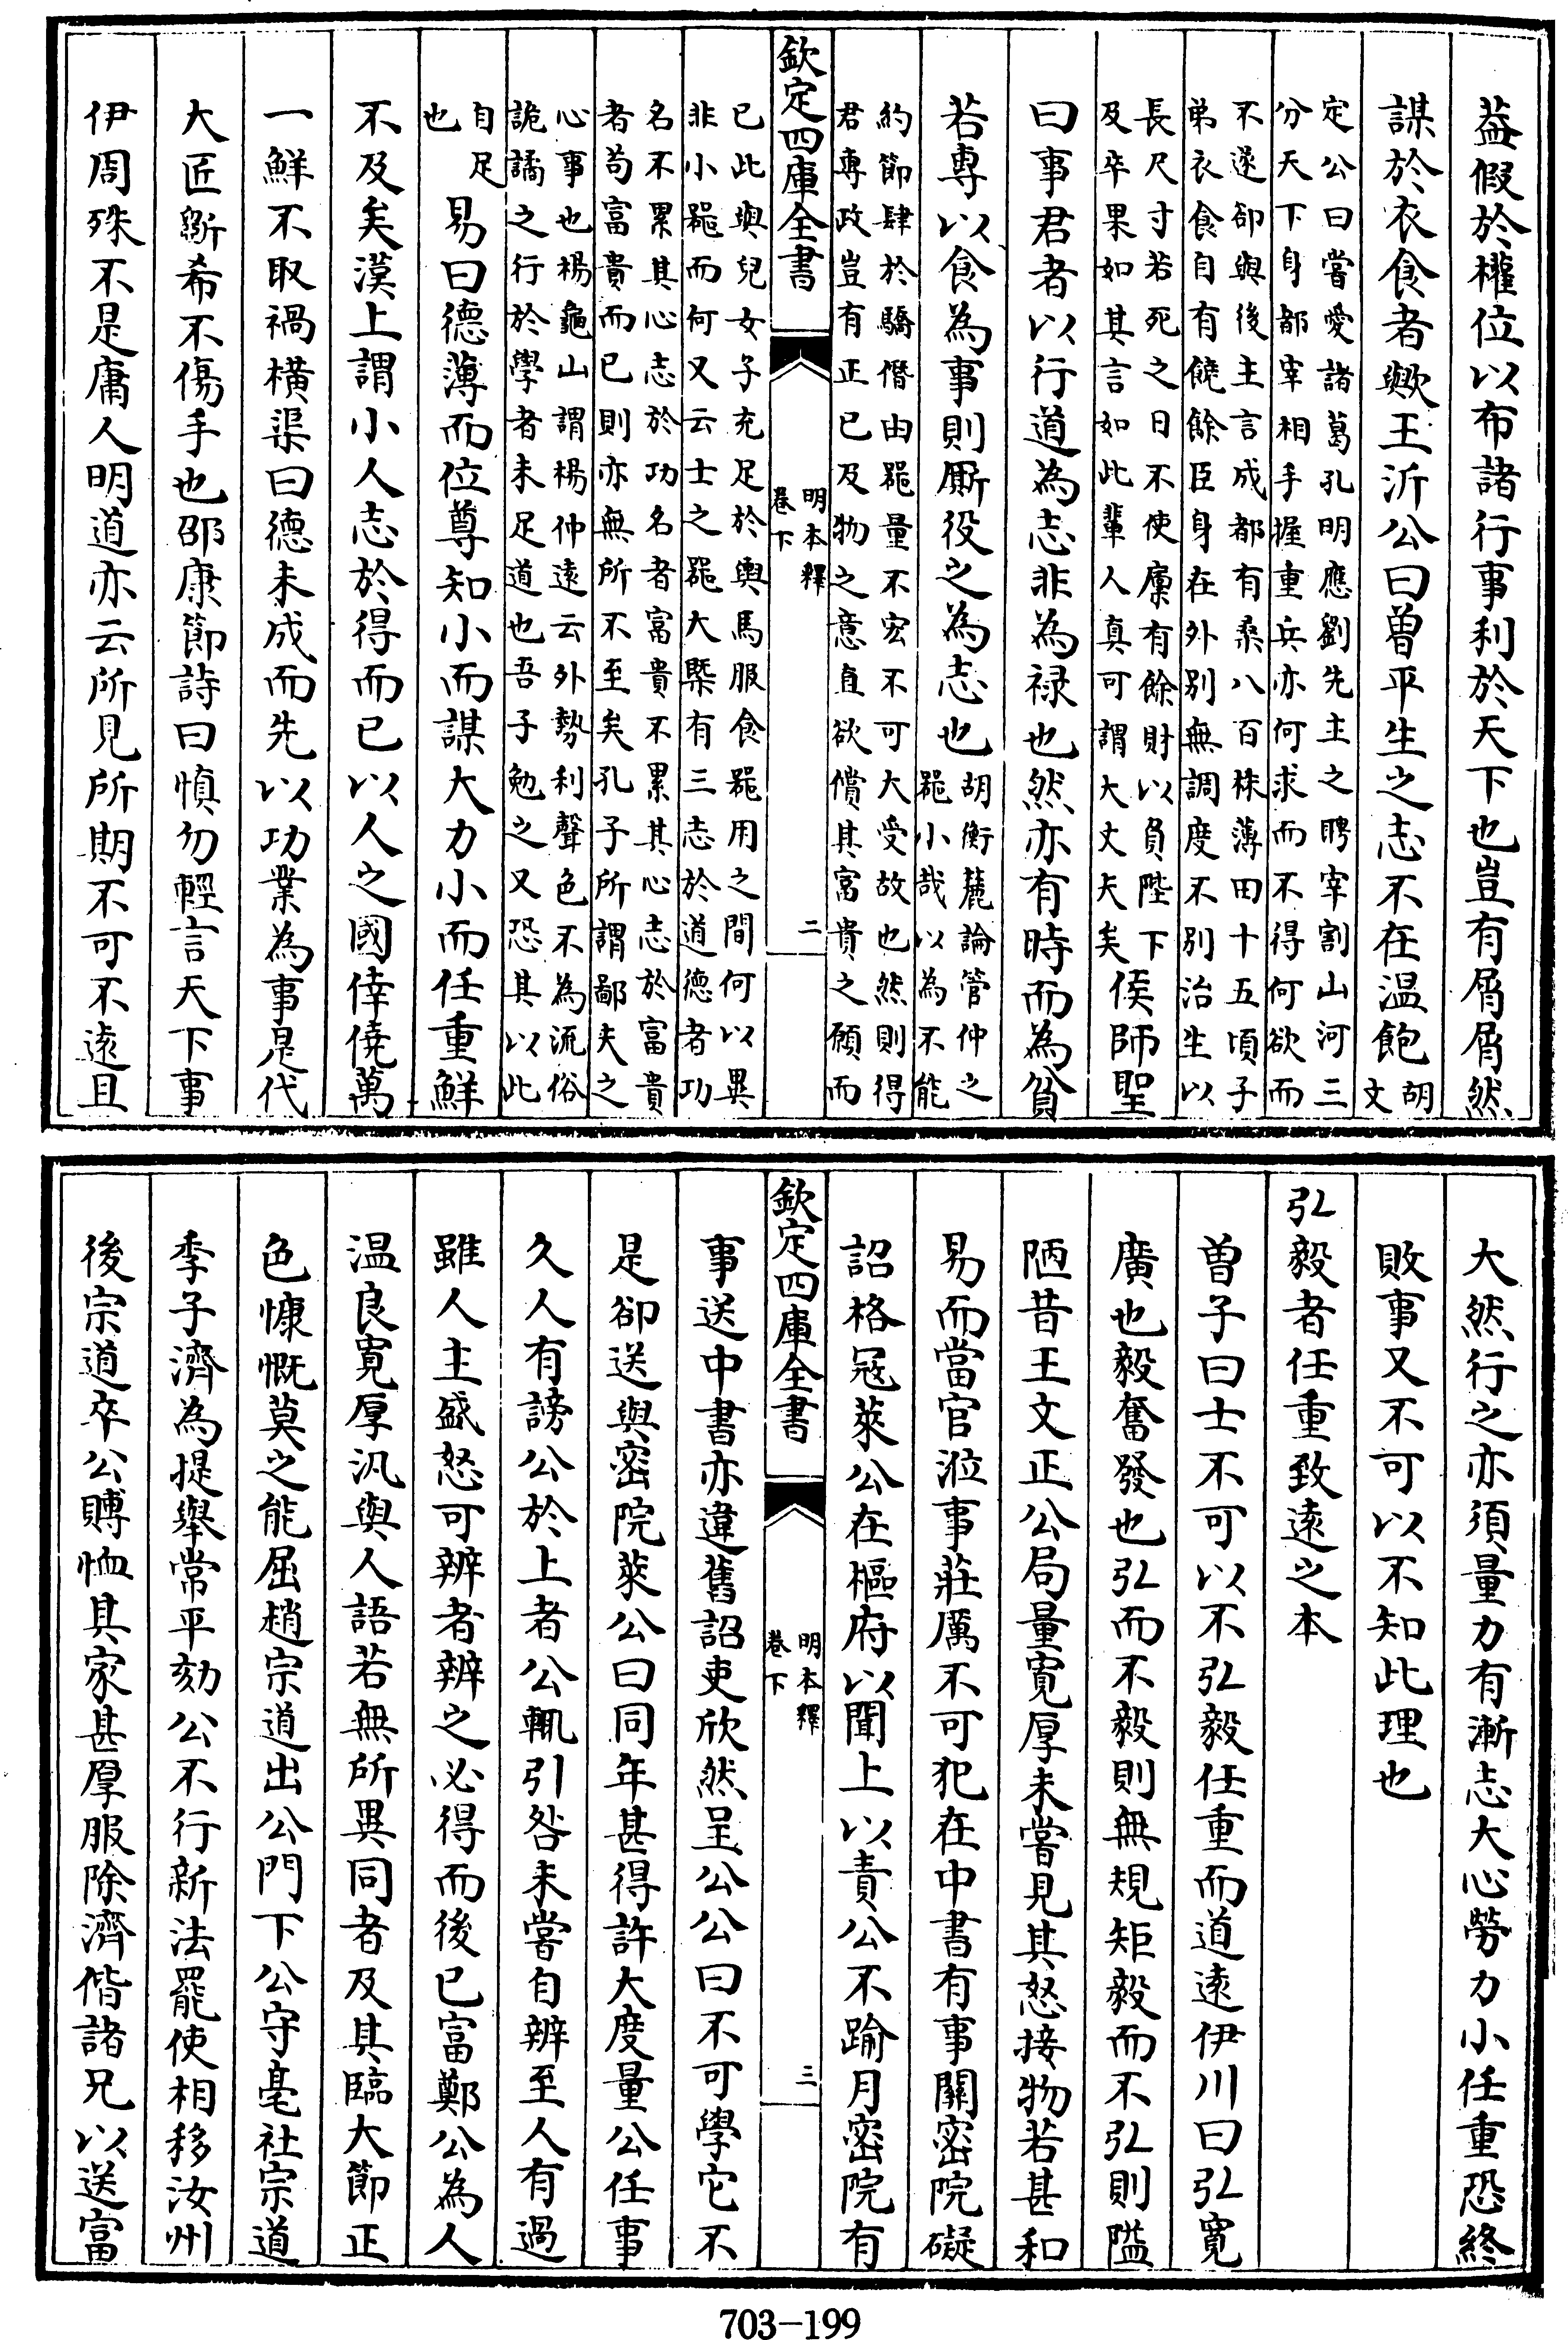 葢假於權位以布諸行事利於天下也豈有屑屑然
謀於衣食者歟王沂公曰曾平生之志不在温飽胡文
定公曰嘗愛諸葛孔明應劉先主之聘宰割山河三
分天下身都宰相手握重兵亦何求而不得何欲而
不遂卻與後主言成都有桑八百株薄田十五頃子
弟衣食自有饒餘臣身在外别無調度不别治生以
長尺寸若死之日不使廩有餘財以負陛下
及卒果如其言如此輩人真可謂大丈夫矣
侯師聖
曰事君者以行道為志非為禄也然亦有時而為貧
若專以食為事則厮役之為志也
胡衡麓論管仲之
器小哉以為不能
約節肆於驕僭由器量不宏不可大受故也然則得
君專政豈有正已及物之意直欲償其富貴之願而
欽定四庫全書
明本釋
卷下
二
已此與兒女子充足於輿馬服食器用之間何以異
非小器而何又云士之器大槩有三志於道德者功
名不累其心志於功名者富貴不累其心志於富貴
者茍富貴而已則亦無所不至矣孔子所謂鄙夫之
心事也楊龜山謂楊仲遠云外勢利聲色不為流俗
詭譎之行於學者未足道也吾子勉之又恐其以此
自足
也
易曰德薄而位尊知小而謀大力小而任重鮮
不及矣漢上謂小人志於得而已以人之國倖僥萬
一鮮不取禍橫渠曰德未成而先以功業為事是代
大匠斲希不傷手也邵康節詩曰慎勿輕言天下事
伊周殊不是庸人明道亦云所見所期不可不遠且
大然行之亦須量力有漸志大心勞力小任重恐終
敗事又不可以不知此理也
弘毅者任重致遠之本
曾子曰士不可以不弘毅任重而道遠伊川曰弘寛
廣也毅奮發也弘而不毅則無規矩毅而不弘則隘
陋昔王文正公局量寛厚未嘗見其怒接物若甚和
易而當官涖事莊厲不可犯在中書有事關密院礙
詔格冦萊公在樞府以聞上以責公不踰月密院有
欽定四庫全書
明本釋
卷下
三
事送中書亦違舊詔吏欣然呈公公曰不可學它不
是卻送與密院萊公曰同年甚得許大度量公任事
久人有謗公於上者公輒引咎未嘗自辨至人有過
雖人主盛怒可辨者辨之必得而後已富鄭公為人
温良寛厚汎與人語若無所異同者及其臨大節正
色慷慨莫之能屈趙宗道出公門下公守亳社宗道
季子濟為提舉常平劾公不行新法罷使相移汝州
後宗道卒公賻恤其家甚厚服除濟偕諸兄以送富
703-199